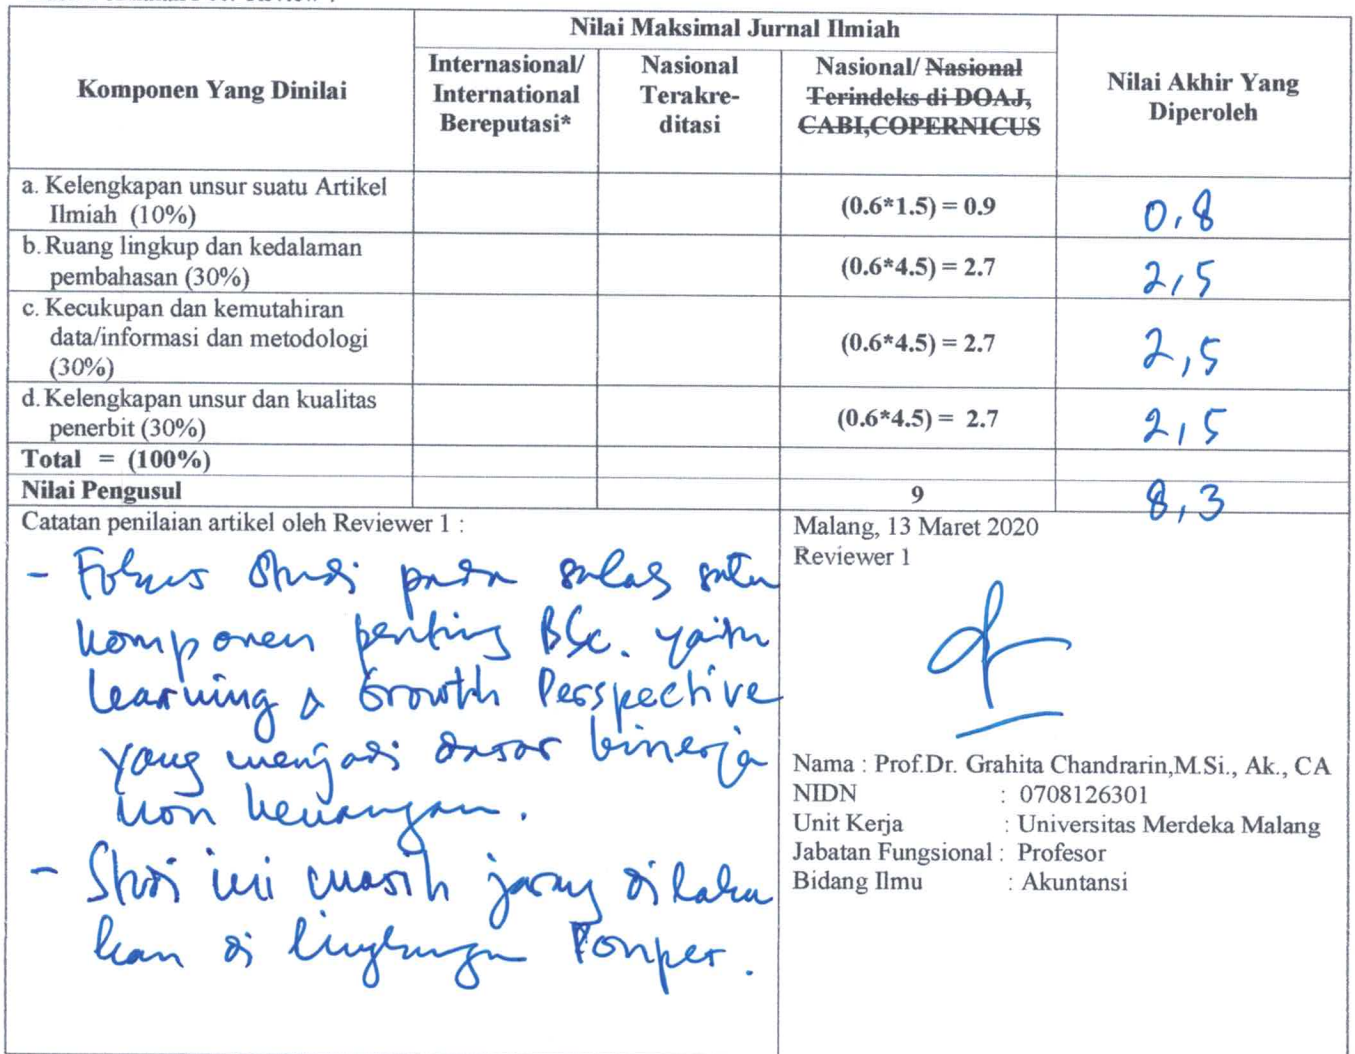 Nilai Maksimal Jurnal Ilmiah
Komponen Yang Dinilai
Internasional/
International
Bereputasi*
Nasional
Terakre-
ditasi
Nasional/ Nasional
Terindeks di DOAJ,
CABI,COPERNICUS
Nilai Akhir Yang
Diperoleh
a. Kelengkapan unsur suatu Artikel
Ilmiah (10%)
(0.6*1.5) = 0.9
0,8
b. Ruang lingkup dan kedalaman
pembahasan (30%)
(0.6*4.5) = 2.7
2,5
c. Kecukupan dan kemutahiran
data/informasi dan metodologi
(30%)
(0.6*4.5) = 2.7
2,5
d. Kelengkapan unsur dan kualitas
penerbit (30%)
(0.6*4.5) = 2.7
2,5
Total = (100%)
Nilai Pengusul
9
8,3
Catatan penilaian artikel oleh Reviewer 1 :
- Fokus Studi pada salah satu
komponen penting BSc. yaitu
Learning & Growth Perspective
yang menjadi dasar kinerja
non keuangan.
- Studi ini masih jarang dilaku
kan di lingkungan
Malang, 13 Maret 2020
Reviewer 1
Nama : Prof.Dr. Grahita Chandrarin,M.Si., Ak., CA
NIDN : 0708126301
Unit Kerja : Universitas Merdeka Malang
Jabatan Fungsional : Profesor
Bidang Ilmu : Akuntansi